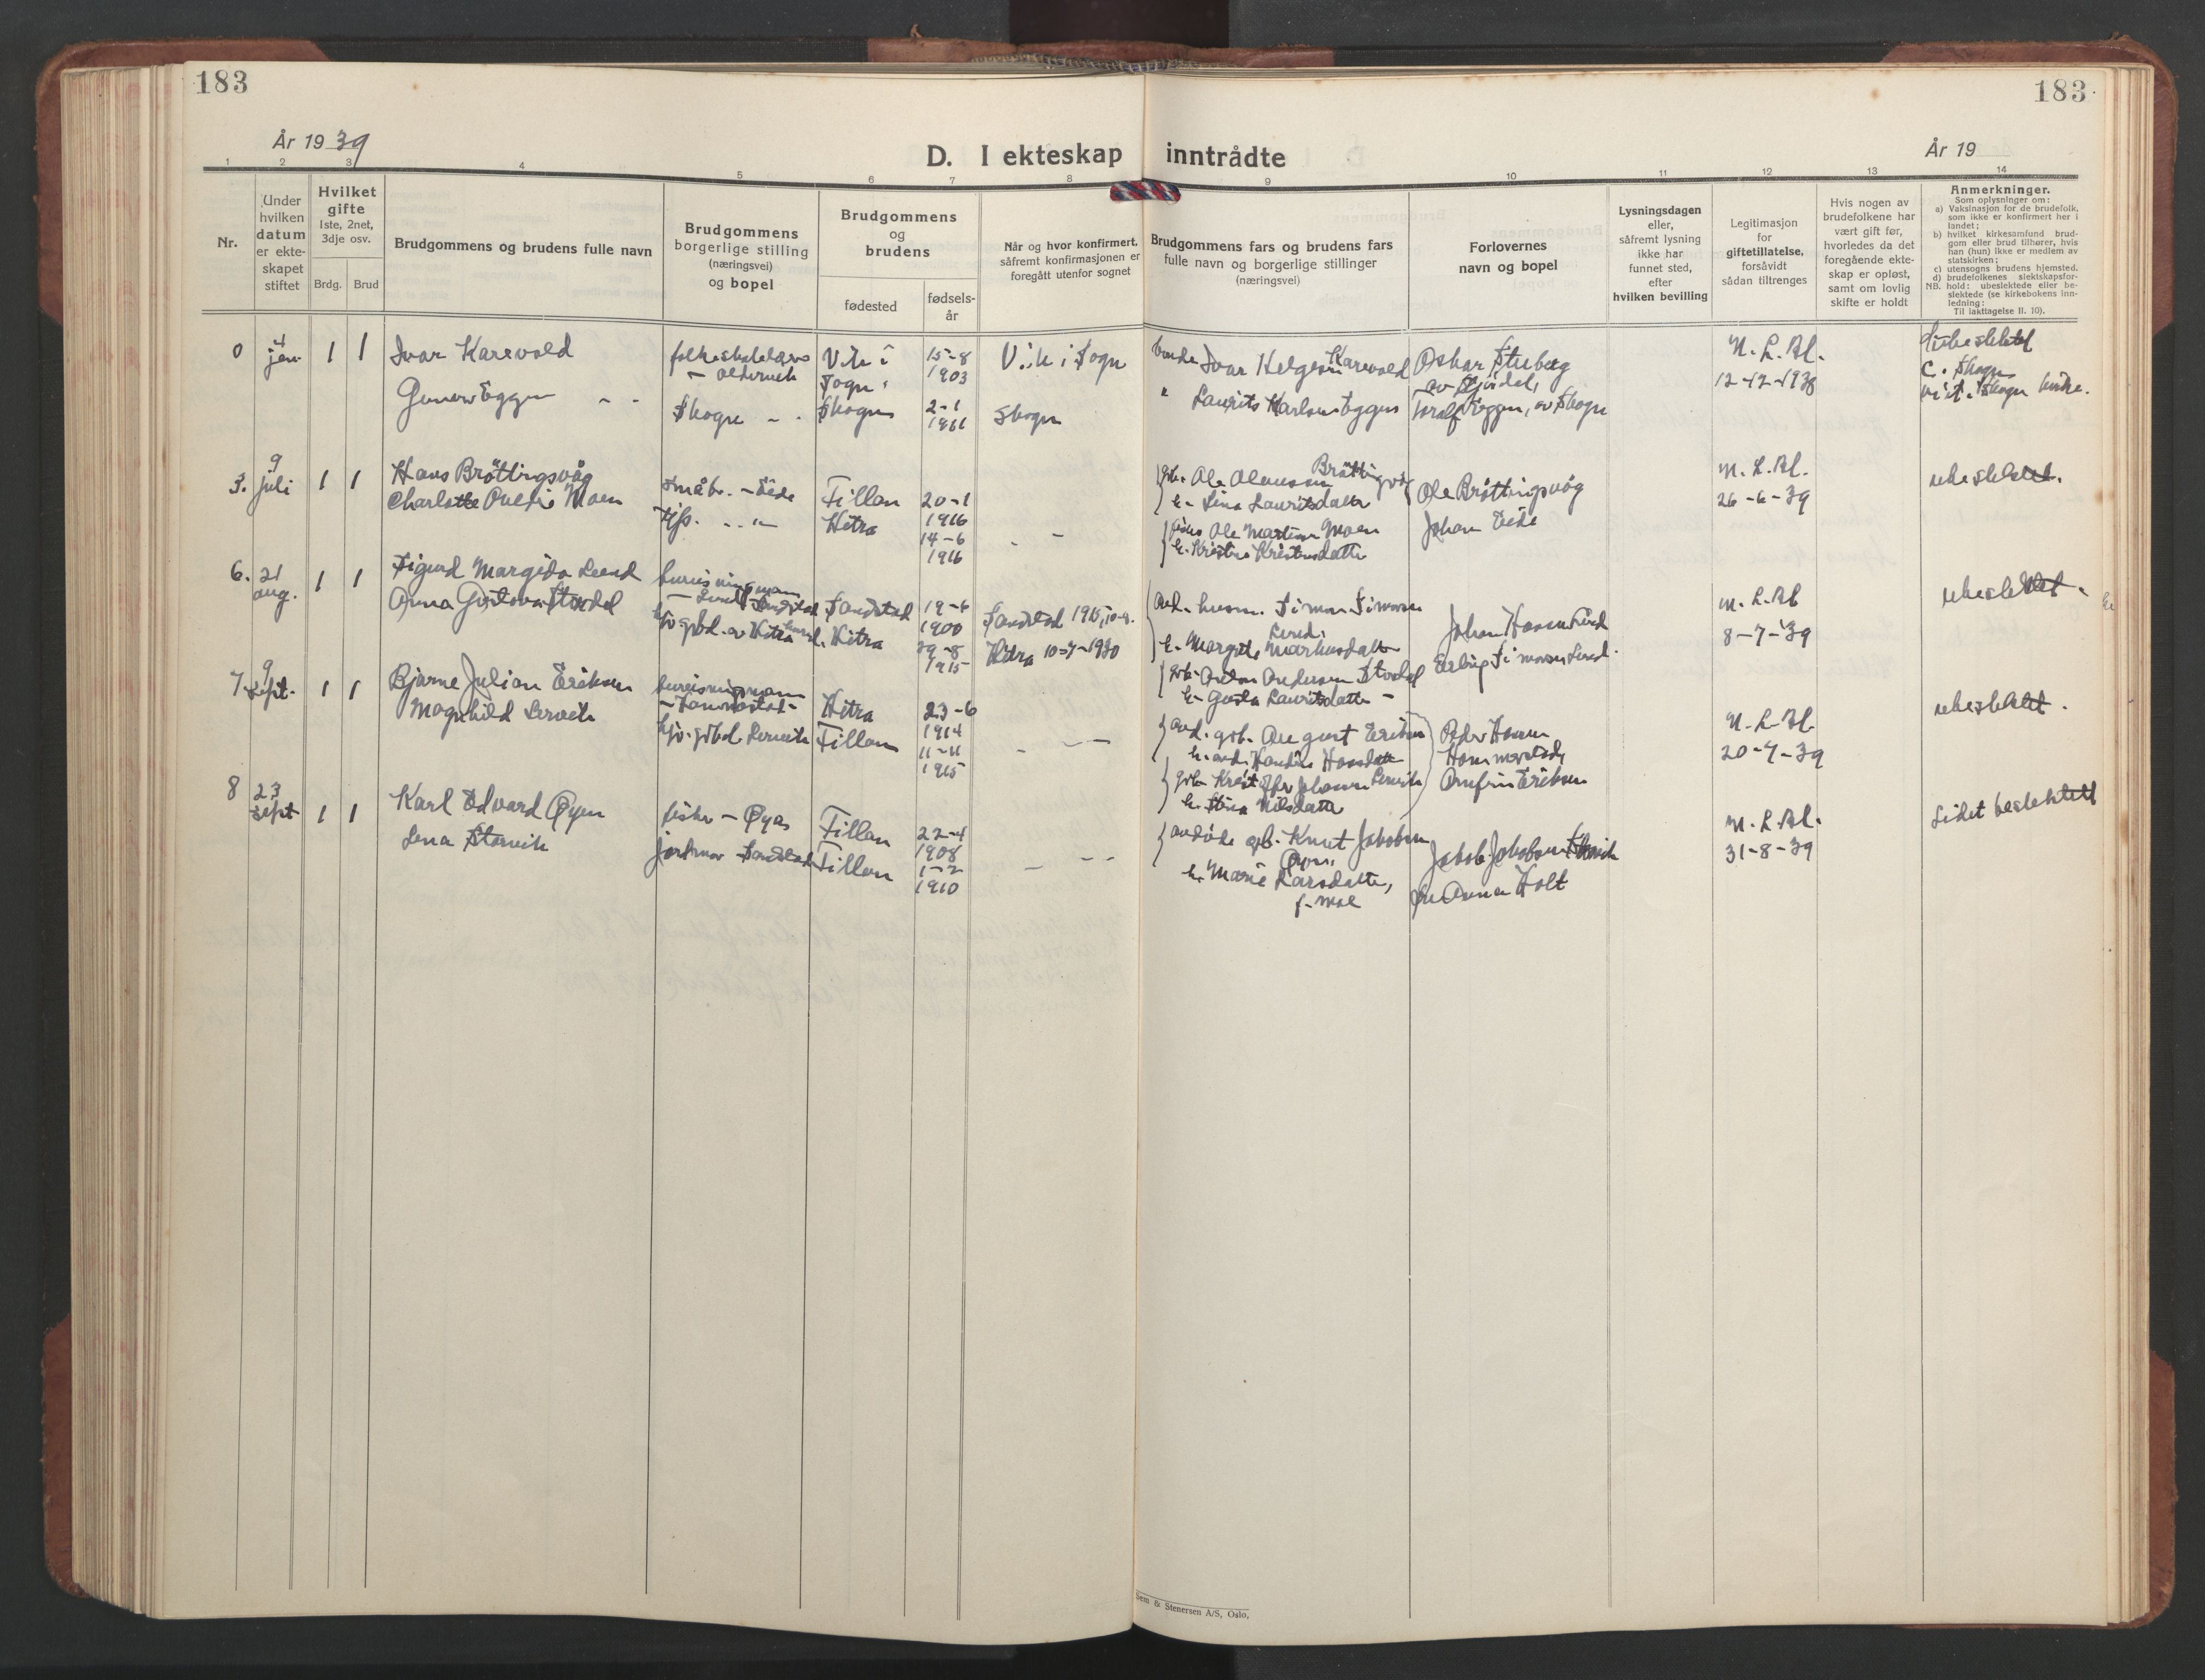 183
183
År 1939
D. I ekteskap inntrådte
År 19
1 2 3 4 5 6 7 8 9 10 11 12 13 14
Nr.
Under
hvilken
datum
er ekte-
skapet
stiftet
Hvilket
gifte
1ste, 2net,
3dje osv.
Brdg. Brud
Brudgommens og brudens fulle navn
Brudgommens
borgerlige stilling
(næringsvei)
og bopel
Brudgommens
og
brudens
fødested
fødsels-
år
Når og hvor konfirmert,
såfremt konfirmasjonen er
foregått utenfor sognet
Brudgommens fars og brudens fars
fulle navn og borgerlige stillinger
(næringsvei)
Forlovernes
navn og bopel
Lysningsdagen
eller,
såfremt lysning
ikke har
funnet sted,
efter
hvilken bevilling
Legitimasjon
for
giftetillatelse,
forsåvidt
sådan tiltrenges
Hvis nogen av
brudefolkene har
vært gift før,
hvorledes da det
foregående ekte-
skap er opløst,
samt om lovlig
skifte er holdt
Anmerkninger.
Som oplysninger om:
a) Vaksinasjon for de brudefolk,
som ikke er konfirmert her i
landet;
b) hvilket kirkesamfund brud-
gom eller brud tilhører, hvis
han (hun) ikke er medlem av
statskirken;
c) utensogns brudens hjemsted.
d) brudefolkenes slektskapsfor-
NB. hold: ubeslektede eller be-
slektede (se kirkebokens inn-
ledning:
Til iakttagelse II. 10).
0 4 jan. 1 1
Ivar Karevold
Gunvor Eggen
Vik i
Sogn
15-8
1903
Vik i Sogn
Skogn
Skogn
2-1
1911
Skogn
Ivar Helgesen Karevold
Laurits Karlsen Eggen
Oskar Stuberg
Toralf Eggen, av Skogn
M.L.Bl.
12-12-1938
Ubeslektet
C. Skogn
3. 9 juli 1 1
Hans Brøttingsvåg
Charlotte Moen
småbr. - Eide
Fillan
Hitra
20-1
1916
14-6
1916
- -
Ole Olaussen Brøttingsvåg
h. Lina Lauritsdatter
Ole Martin Moen
Ole Brøttingsvåg
Johan Eide
M.L.Bl.
26-6-39
ubeslektet.
6. 21 aug. 1 1
Sigurd Margido Lund
Anna Gustava Stordal
bureisningsmann
- Lund Sandstad
Sandstad
Hitra
19-6
1900
29-8
1915
Sandstad 1915,
Hitra 10-7-1930
husm. Simon Simonsen
Lund.
h. Margrete Markusdatter
Anton Andersen Stordal
h. Gusta Lauritsdatter -
Johan Hansen Lund
Erling Simonsen Lund.
M.L.Bl
8-7-39
ubeslektet.
7. 9 sept. 1 1
Bjarne Julian Eriksen
Magnhild Lervik
bureisningsmann
- Hammerstad -
Lervik
Hitra
Fillan
23-6
1914
11-11
1915
- - -
avd. grb. August Eriksen
grb. Kristoffer Johansen Lervik
h. Stina Nilsdatter
Peder Hansen
Hammerstad,
Arnfinn Eriksen
M.L.Bl.
20-7-39
ubeslektet.
8 23 sept 1 1
Karl Edvard Øyen
Lena Storvik
fisker - Øyas
jordmor Sandstad
Fillan
Fillan
22-4
1908
1-2
1910
- - -
avdøde grb. Knut Jakobsen
Øyen,
h. Marie Larsdatter,
f. Moe
Jakob Jakobsen Storvik
fru Anna Holt
M.L.Bl.
31-8-39
Lidet beslektet
Sem & Stenersen A/S, Oslo.